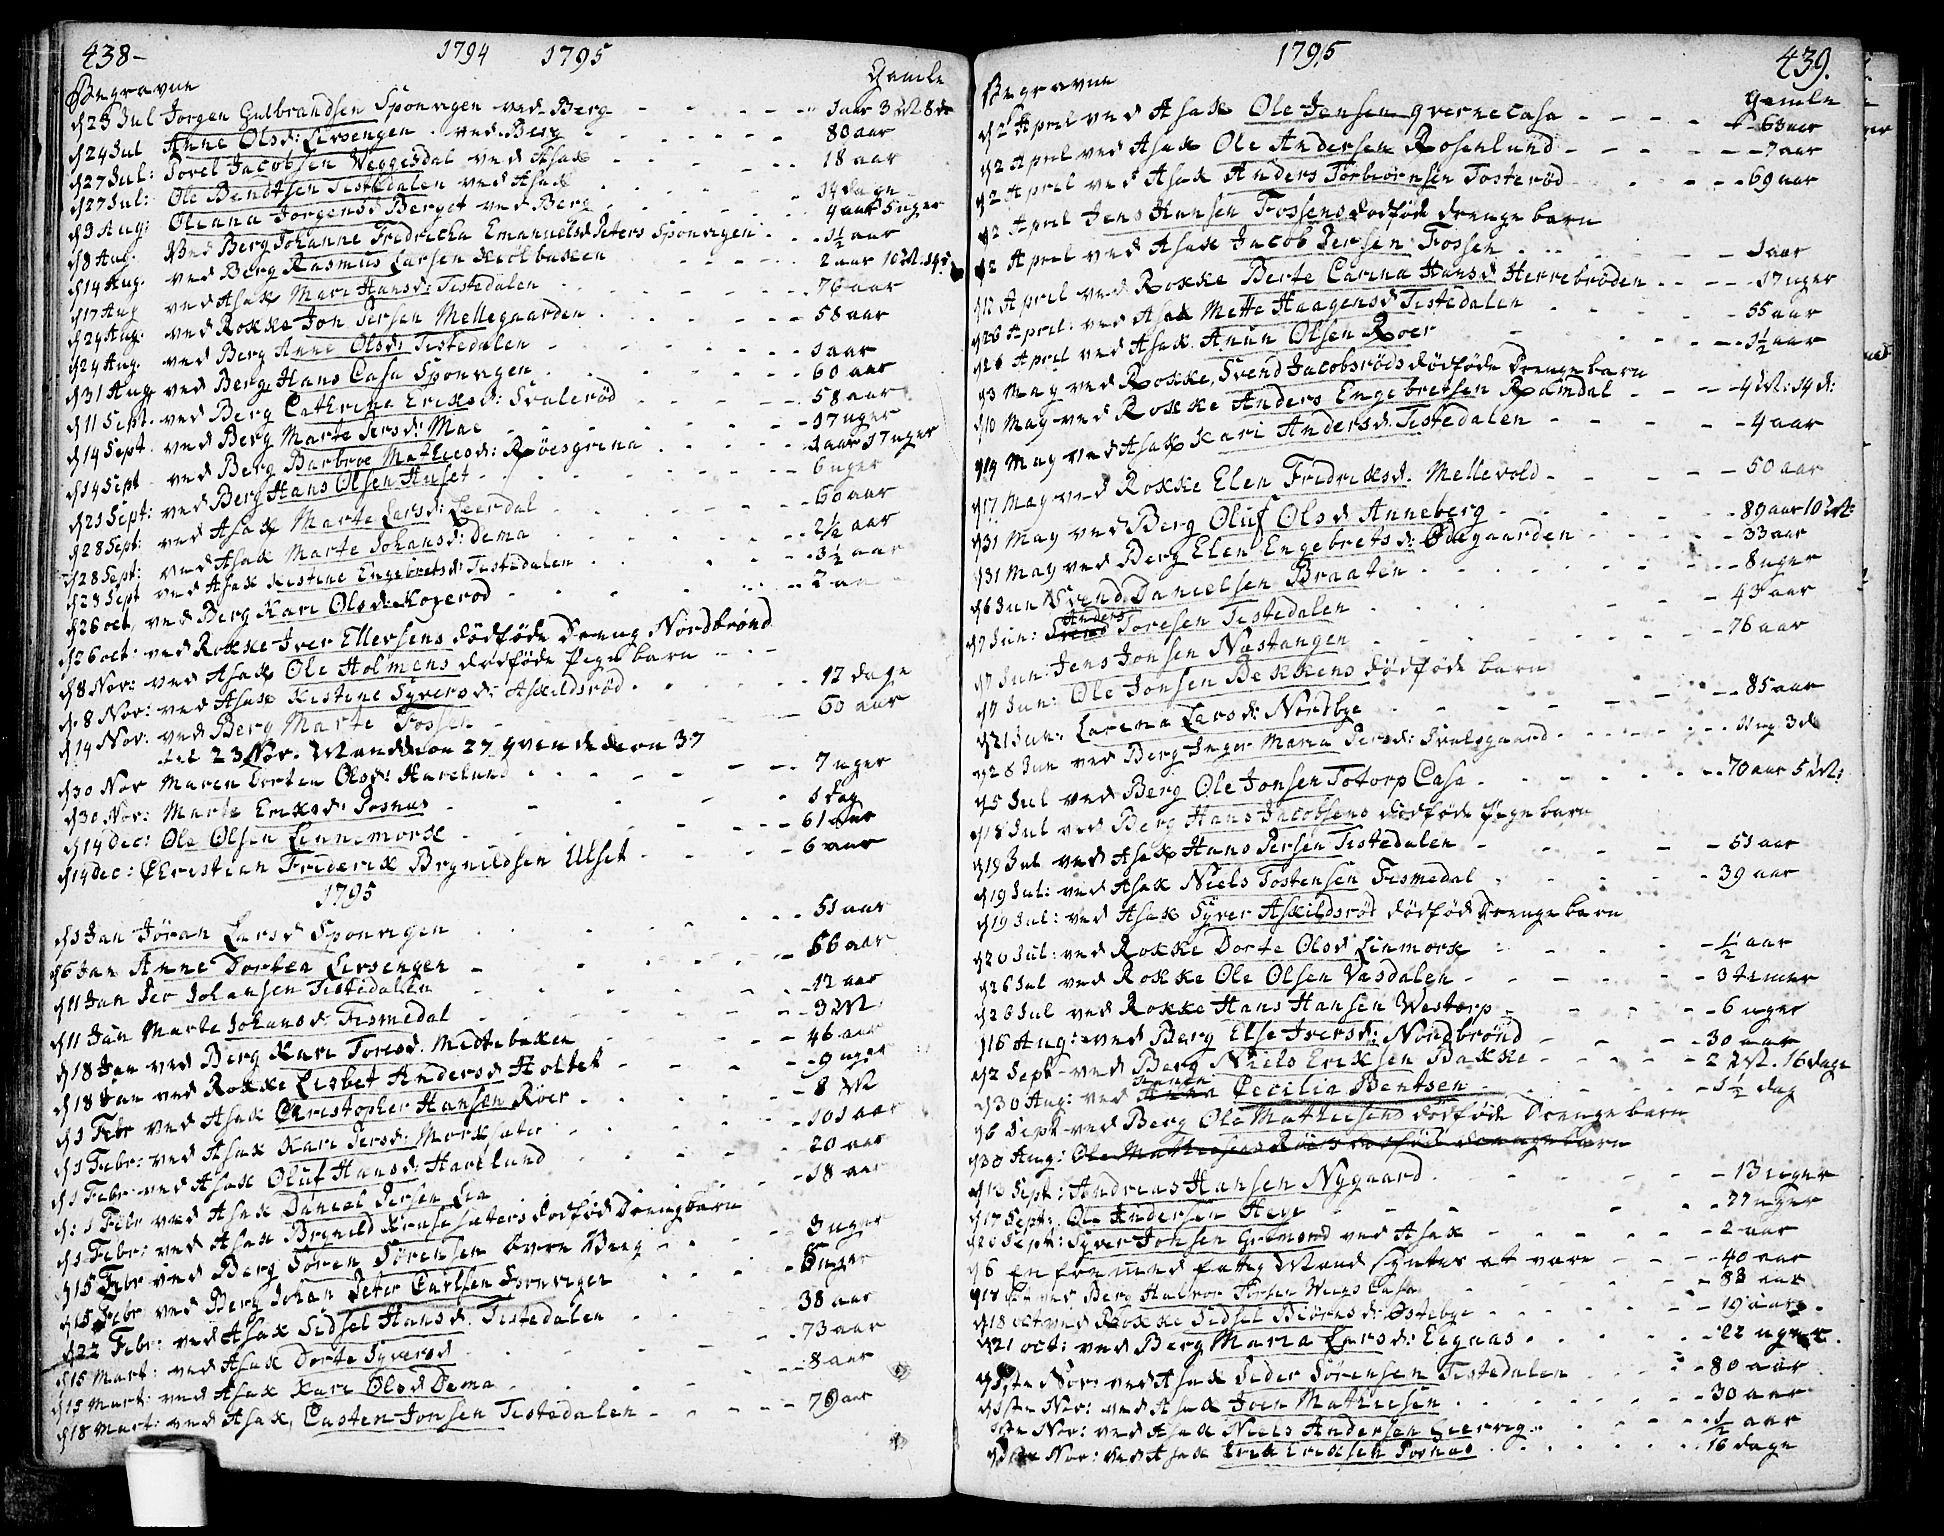 438-
1794 1795
Begravne Gamle
d 23 Jul Jorgen Gulbrandsen Sponvigen ved Berg - - - 1 aar 3 M 8 d
d 24 Jul Anne Olsd: Lirsengen ved Berg - - - 80 aar
d 27 Jul: Povel Jacobsen Veggesdal ved Asak - - - 18 aar
d 27 Jul: Ole Bendtsen Tistedalen ved Asak - - - 14 dage
d 3 Aug: Oleana Jorgensd Berget ved Berg - - - 4 aar 5 uger
d 8 Aug. ved Berg Johanne Fredricka Emanuelsd Peters Sponvigen - - - 1½ aar
d 14 Aug. ved Berg Rasmus Larsen Kiølbakken - - - 2 aar 10 M. 14 d
d 17 Aug ved Asak Mari Hansd: Tistedalen - - - 76 aar
d 24 Aug: ved Rokke Jon Persen Mellegaarden - - - 58 aar
d 24 Aug. ved Berg Anne Olsd: Tistedalen - - - 1 aar
d 31 Aug ved Berg Hans Casa Sponvigen - - - 60 aar
d 11 Sept. ved Berg Cathrina Eriksd: Svalerød - - - 58 aar
d 14 Sept. ved Berg Marte Persd: Mae - - - 17 uger
d 14 Sept ved Berg Barbroe Mathiesd: Røesgrina - - - 1 aar 17 uger
d 21 Sept: ved Berg Hans Olsen Huset - - - 6 uger
d 28 Sept: ved Asak Marte Larsd: Leerdal - - - 60 aar
d 28 Sept: ved Asak Marte Johansd: Dema - - - 2½ aar
d 28 Sept ved Asak Kistine Engebretsd: Tistedalen - - - 3½ aar
d 26 oct. ved Berg Kari Olsd: Kogerød - - - 2 aa
d 26 oct. ved Rokke Iver Ellersens dødføde Dreng Nordbrønd
d 8 Nov: ved Asak Ole Holmens dødføde Pige barn - - -
d 8 Nov: ved Asak Kistine Syversd: Askildsrød - - - 12 dage
d 14 Nov: ved Berg Marte Fossen - - - 60 aar
til 23 Nov. Mandkiøn 27 qvindekiøn 37
d 30 Nov Maren Dorten Olsd: Harelund - - - 7 uger
d 30 Nov: Marte Eriksd: Posnas - - - 1 dag
d 14 Dec: Ole Olsen Linnemork - - - 61 aar
d 14 dec: Christian Friderik Brynildsen Ulset - - - 6 aar
1795
d 1 Jan Jøran Larsd Sponvigen - - - 51 aar
d 6 Jan Anne Dorten Lirsengen - - - 66 aar
d 11 Jan Per Johansen Tistedallen - - - 12 aar
d 11 Jan Marte Johansd: Fismedal - - - 3 M
d 18 Jan ved Berg Kari Toresd. Midtebaken - - - 46 aar
d 18 Jan ved Rokke Lisbet Andersd Holtet - - - 9 uger
d 1 Febr ved Asak Christopher Hansen Röer - - - 8 M
d 1 Febr: ved Asak Kari Persd: Morksater - - - 101 aar
d 1 Febr ved Asak Oluf Hansd: Harelund - - - 20 aar
d: 1 Febr ved Asak Daniel Persen Lia - - - 18 aar
d 1 Febr: ved Asak Brynild Krusesæters dødfød Drengbarn
d 15 Febr ved Berg Søren Sørensen Øvre Berg - - - 3 uger
d 15 Febr ved Berg Johan Peter Carlsen Sponvigen - - - 6 uger
d 22 Febr: ved Asak Sidsel Hansd. Tistedalen - - - 38 aar
d 15 Mart: ved Asak Dorte Syversd - - - 73 aar
d 15 Mart: ved Asak Kari Olsd Dema - - - 8 aar
d 18 Mart: ved Asak, Casten Jonsen Tistedalen - - - 79 aar
1795 439.
Begravne Gamle
d 2 April ved Asak Ole Jensen qvernecasa - - - 63 aar
d 2 April ved Asak Ole Andersen Rosenlund - - - 7 aar
d 2 April ved Asak Anders Torbiørnsen Tosterød - - - 69 aar
d 2 April Jens Hansen Fossens dødføde drenge barn
d 2 April ved Asak Jacob Persen Fossen - - - 1 aar
d 12 April ved Rokke Berte Carina Hansd Herrebrøden - - - 17 uger
d 26 April: ved Asak Mette Haagensd Tistedalen - - - 55 aar
d 26 April ved Asak Anun Olsen Roer - - - 1½ aar
d 3 May ved Rokke, Svend Jacobsrøds dødføde Drenge barn
d 10 May ved Rokke Anders Engebretsen Ramdal - - - 4 M: 14 d:
d 14 May ved Asak Kari Andersd. Tistedalen - - - 4 aar
d 17 May ved Rokke Elen Fridriksd. Mellevold - - - 50 aar
d 31 May ved Berg Oluf Olsd Anneberg - - - 89 aar 10 M:
d 31 May ved Berg Elen Engebretsd: Ødegaarden - - - 33 aar
d 6 Jun Svend Danielsen Braaten - - - 8 uger
d 7 Jun: Anders Toresen Tistedalen - - - 43 aar
d 7 Jun: Jens Jonsen Næstangen - - - 76 aar
d 7 Jun: Ole Jonsen Bekkens dødføde barn
d 21 Jun: Larena Larsd: Nordbye - - - 85 aar
d 28 Jun ved Berg Inger Maria Persd: Svalsgaard - - - 1 ug 3 d
d 5 Jul ved Berg Ole Jonsen Totorp Casa - - - 70 aar 5 M:
d 18 Jul ved Berg Hans Jacobsens dødføde Pige barn
d 19 Jul ved Asak Hans Persen Tistedalen - - - 51 aar
d 19 Jul: ved Asak Niels Tostensen Fismedal - - - 39 aar
d 19 Jul: ved Asak Syver Askildsrød dødfød Drenge barn
d 26 Jul: ved Rokke Dorte Olsd Linmork - - - ½ aar
d 26 Jul ved Rokke Ole Olsen Vasdalen - - - 3 timer
d 26 Jul ved Rokke Hans Hansen Westorp - - - 6 uger
d 16 Aug: ved Berg Else Iversd: Nordbrønd - - - 30 aar
d 2 Sept ved Berg Niels Eriksen Bakke - - - 2 M. 16 dage
d 30 Aug: ved Cecilia Bentsen - - - 1½ dag
d 6 Sept ved Berg Ole Mathiesens dødføde Drenge barn
d 30 Aug: Ole Mathiesens dødfød drenge barn
d 13 Sept: Andreas Hansen Nygaard - - - 13 uger
d 17 Sept: Ole Andersen Hege - - - 27 uger
d 20 Sept: Syver Jonsen Grimsrød ved Asak - - - 2 aar
d 6 En fremmed fattig Mand syntes at være - - - 40 aar
d 18 oct ved Berg Halvor Torsen Wiiks Casa - - - 88 aar
d 18 oct ved Rokke Sidsel Biørnsd: Østebye - - - 19 aar
d 21 oct: ved Berg Maria Larsd: Eegnaas - - - 22 uger.
d 1ste Nov: ved Asak Peder Sørensen Tistedalen - - - 80 aar
d 1ste Nov: ved Asak Joen Mathiesen - - - 30 aar
1ste Nov: ved Asak Niels Andersen Leervig - - - ½ aar
d 1ste Nov: ved Asak Erik Eriksen Posnas - - - 16 dage